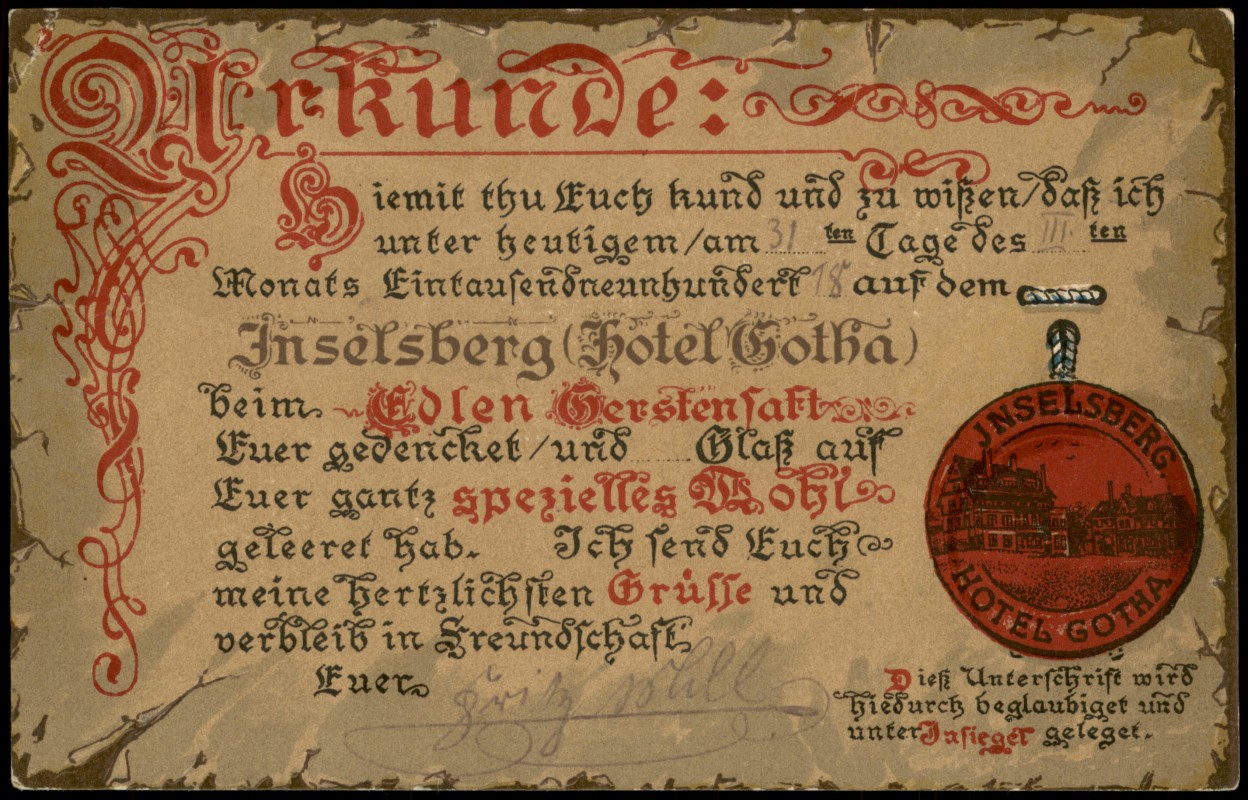 Urkunde:
Hiemit thu Euch kund und zu wißen/daß ich
unter heutigem/am 31 ten Tage des III. ten
Monats Eintausendneunhundert 18 auf dem
Inselsberg (Hotel Gotha)
beim Edlen Gerstensaft
Euer gedencket/und ..... Glaß auf
Euer gantz spezielles Wohl
geleeret hab. Ich send Euch
meine hertzlichsten Grüsse und
verbleib in Freundschaft
Euer
Fritz
JNSELSBERG.
HOTEL GOTHA
Dieß Unterschrift wird
hiedurch beglaubiget und
unter Insiegel geleget.